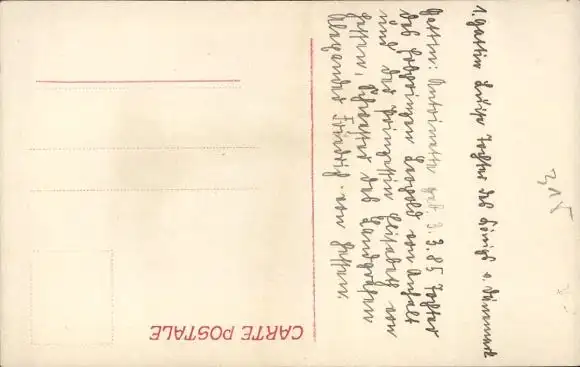 1. Gattin Luise Tochter des Königs v. Dänemark
Gattin: Antoinette geb. 3. 3. 85 Tochter
des Erbprinzen Leopold von Anhalt
und der Prinzessin Elisabeth von
Hessen, Schwester des Landgrafen
Alexander Friedrich von Hessen.
CARTE POSTALE
315